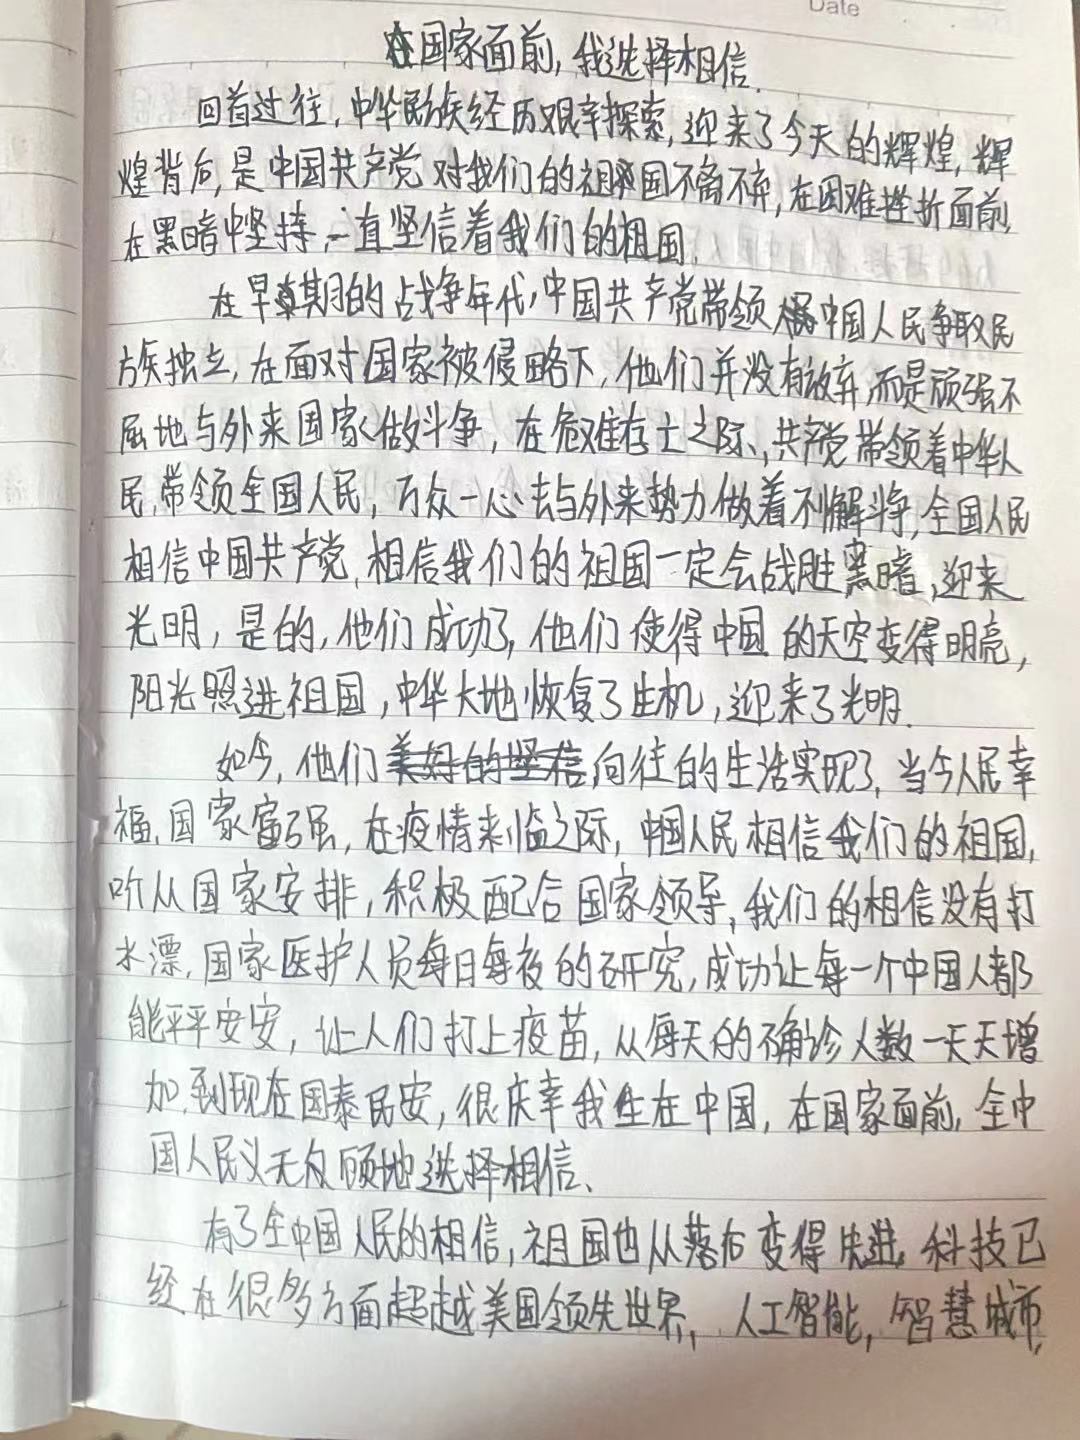 Date
在国家面前,我选择相信.
回首过往,中华民族经历艰辛探索,迎来了今天的辉煌,辉
煌背后,是中国共产党对我们的祖国不离不弃,在困难挫折面前,
在黑暗中坚持,一直坚信着我们的祖国.
在早期的战争年代,中国共产党带领中国人民争取民
族独立,在面对国家被侵略下,他们并没有放弃,而是顽强不
屈地与外来国家做斗争,在危难存亡之际、,共产党带领着中华人
民,带领全国人民,万众一心去与外来势力做着不懈斗争,全国人民
相信中国共产党,相信我们的祖国一定会战胜黑暗,迎来
光明,是的,他们成功了,他们使得中国的天空变得明亮,
阳光照进祖国,中华大地恢复了生机,迎来了光明.
如今,他们向往的生活实现了,当今人民幸
福,国家富强,在疫情来临之际,中国人民相信我们的祖国,
听从国家安排,积极配合国家领导,我们的相信没有打
水漂,国家医护人员每日每夜的研究,成功让每一个中国人都
能平平安安,让人们打上疫苗,从每天的确诊人数一天天增
加,到现在国泰民安,很庆幸我生在中国,在国家面前,全中
国人民义无反顾地选择相信、
有了全中国人民的相信,祖国也从落后变得先进,科技已
经在很多方面超越美国领先世界,,人工智能,智慧城市,